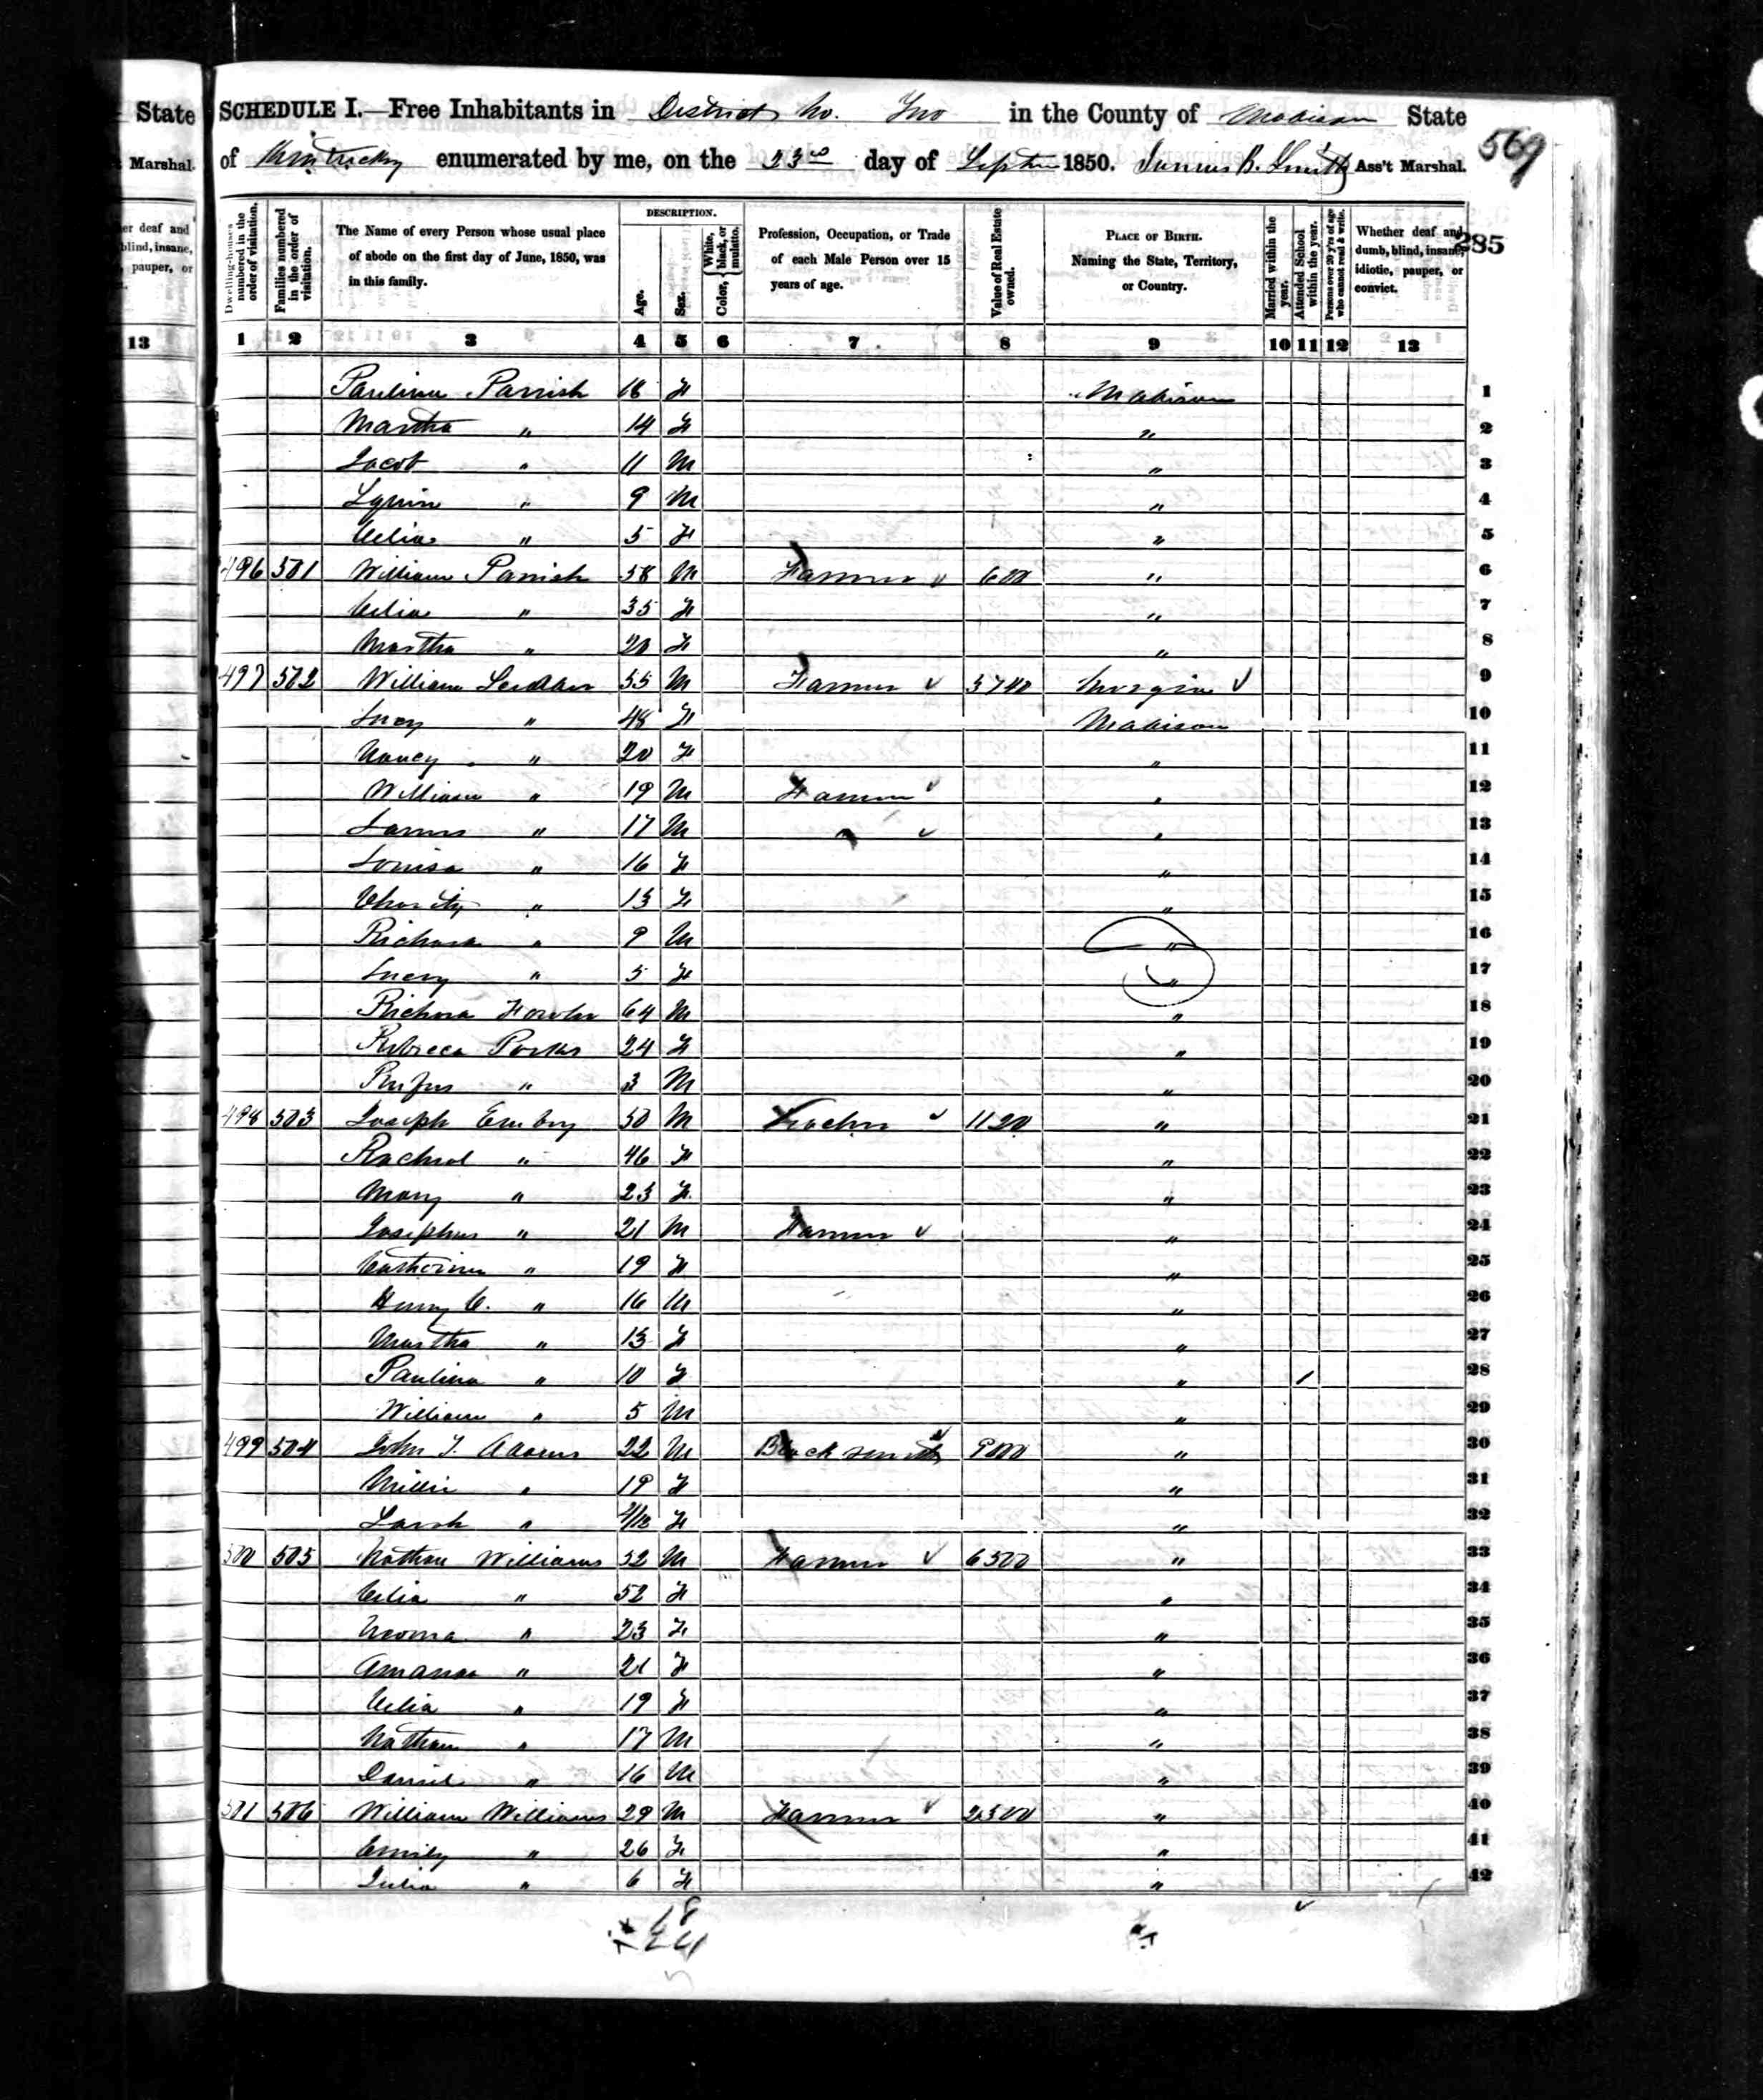 State
Marshal.
er deaf and
blind, insane,
pauper, or
13
SCHEDULE I.—Free Inhabitants in District No. Two in the County of Madison State
of Kentucky enumerated by me, on the 23rd day of Septem 1850. B. Smith Ass't Marshal.
569
285
Dwelling-houses numbered in the order of visitation.
Families numbered in the order of visitation.
The Name of every Person whose usual place of abode on the first day of June, 1850, was in this family.
DESCRIPTION.
Age.
Sex.
Color, { White, black, or mulatto.
Profession, Occupation, or Trade of each Male Person over 15 years of age.
Value of Real Estate owned.
PLACE OF BIRTH. Naming the State, Territory, or Country.
Married within the year.
Attended School within the year.
Persons over 20 y'rs of age who cannot read & write.
Whether deaf and dumb, blind, insane, idiotic, pauper, or convict.
1 2 3 4 5 6 7 8 9 10 11 12 13
Paulina Parrish 18 F Madison 1
Martha " 14 F " 2
Jacob " 11 M " 3
" 9 M " 4
Celia " 5 F " 5
496 501 William Parrish 58 M Farmer 600 " 6
Celia " 35 F " 7
Martha " 20 F " 8
497 502 William 55 M Farmer 5740 9
Lucy " 48 F Madison 10
Nancy " 20 F " 11
William " 19 M Farmer " 12
James " 17 M " " 13
Louisa " 16 F " 14
Charity " 13 F " 15
Richard " 9 M " 16
Lucy " 5 F " 17
Richard Fowler 64 M " 18
Rebecca Parks 24 F " 19
Rufus " 3 M " 20
498 503 Joseph Embry 50 M Teacher 1120 " 21
Rachel " 46 F " 22
Mary " 23 F " 23
Josephus " 21 M Farmer " 24
Catherine " 19 F " 25
Henry C. " 16 M " 26
Martha " 13 F " 27
Paulina " 10 F " / 28
William " 5 M " 29
499 504 John T. Adams 22 M Blacksmith 900 " 30
Millie " 19 F " 31
Sarah " F " 32
500 505 Nathan Williams 52 M Farmer 6500 " 33
Celia " 52 F " 34
Neoma " 23 F " 35
Amanda " 21 F " 36
Celia " 19 F " 37
Nathan " 17 M " 38
Daniel " 16 M " 39
501 506 William Williams 29 M Farmer 2500 " 40
Emily " 26 F " 41
Julia " 6 F " 42
18
24